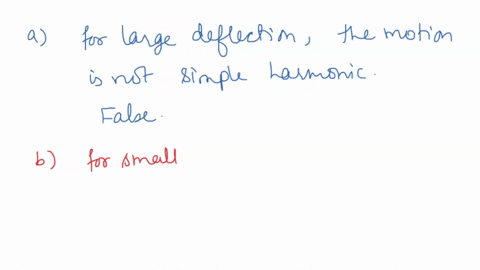 a) for large deflection, the motion
is not simple harmonic.
False.
b) for small